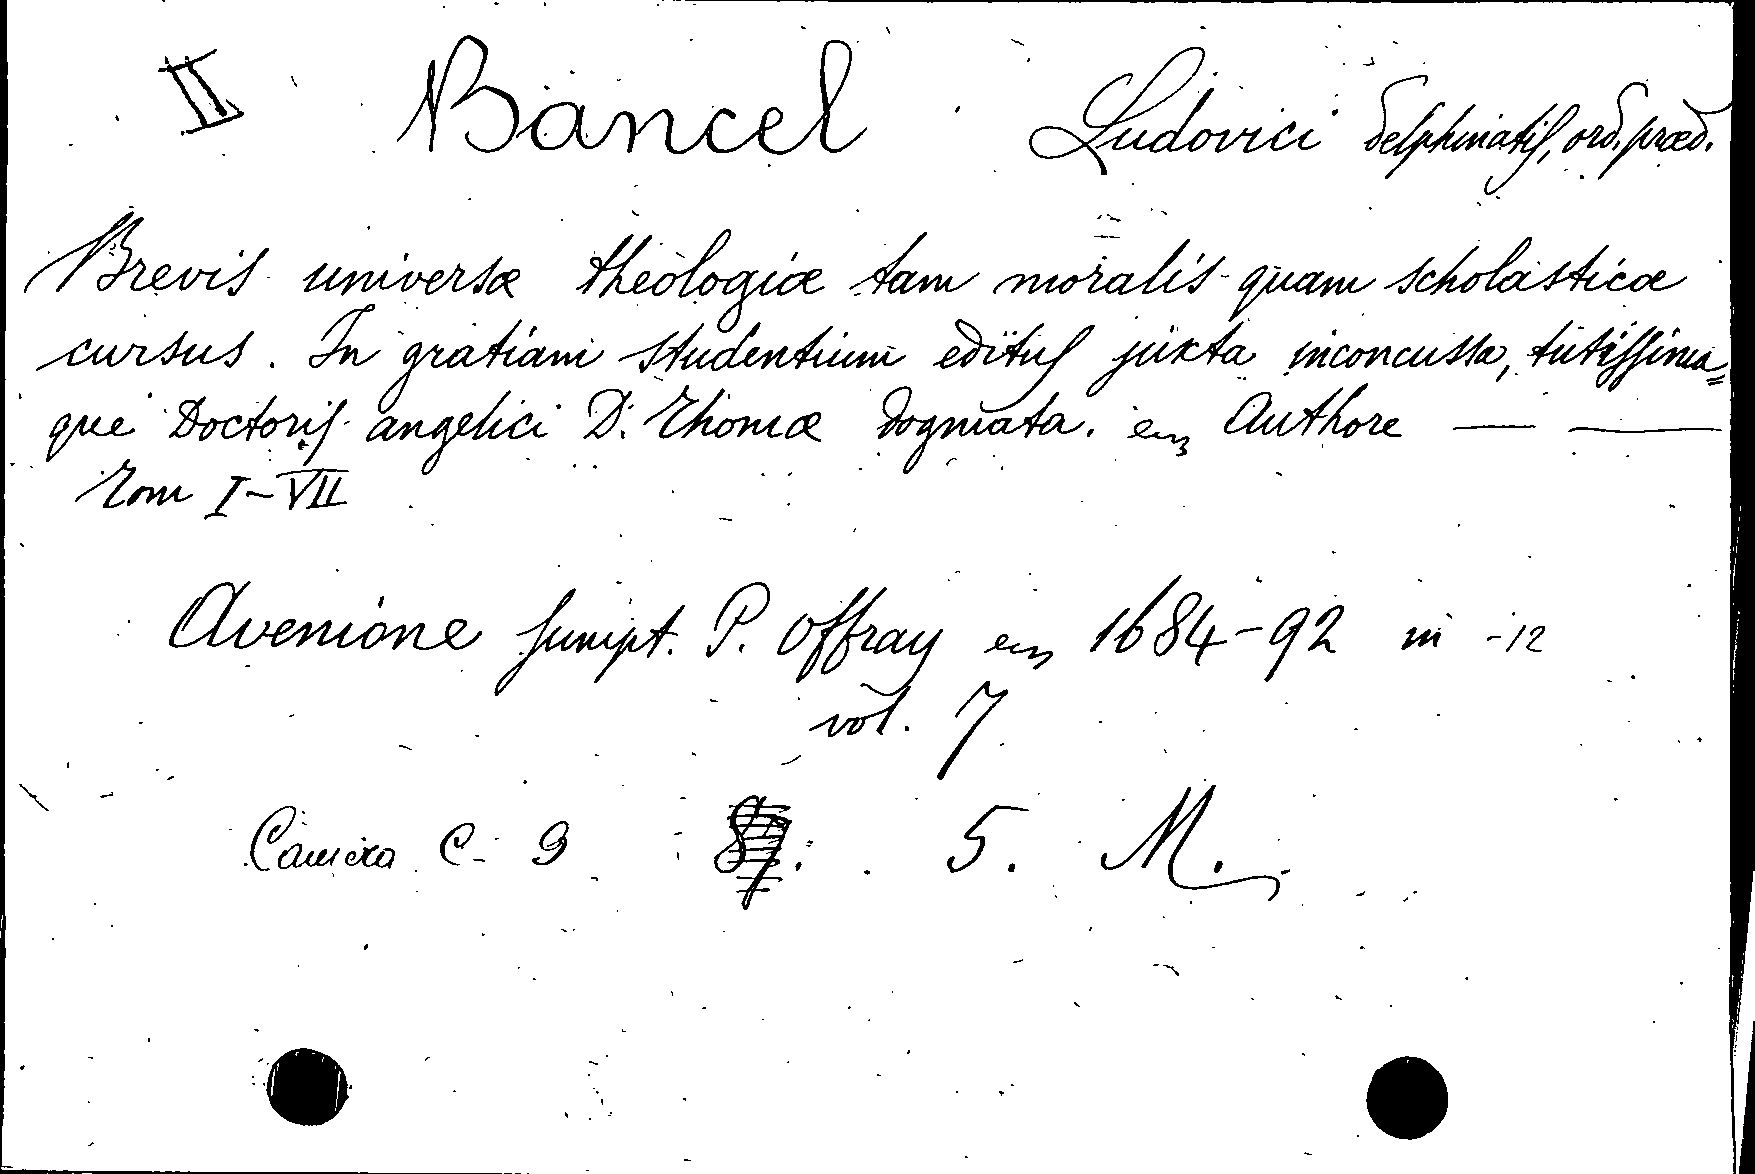 II Bancel Ludovici delphinatis, ord. præd.
Brevis universæ theologiæ tam moralis quam scholasticæ
cursus. In gratiam studentium editus juxta inconcussa, tutissima=
que Doctoris angelici D. Thomæ dogmata. Authore — —
Tom I–VII
Avenione sumpt. P. Offray 1684–92 in -12
vol. 7
Camera C. 9 5. M.